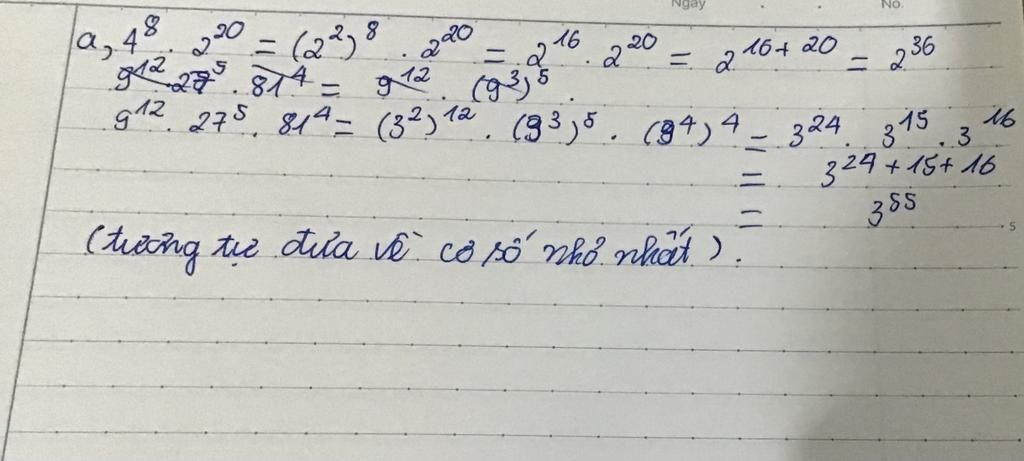 Ngày No.
a, 4^8 . 2^20 = (2^2)^8 . 2^20 = 2^16 . 2^20 = 2^16+20 = 2^36
9^12 . 27^5 . 81^4 = 9^12 . (9^3)^5 .
9^12 . 27^5 . 81^4 = (3^2)^12 . (3^3)^5 . (3^4)^4 = 3^24 . 3^15 . 3^16
= 3^24+15+16
= 3^55
5
(tương tự đưa về cơ số nhỏ nhất).